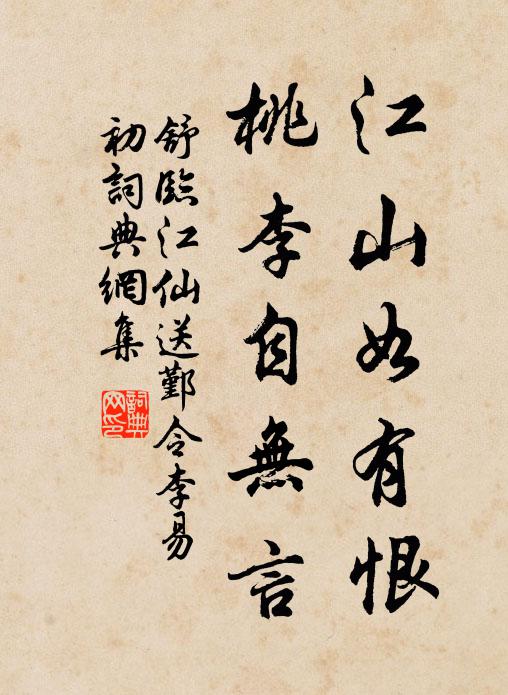 江山如有恨
桃李自無言
舒臨江仙送鄞令李易
初詞典網集
詞典
网印